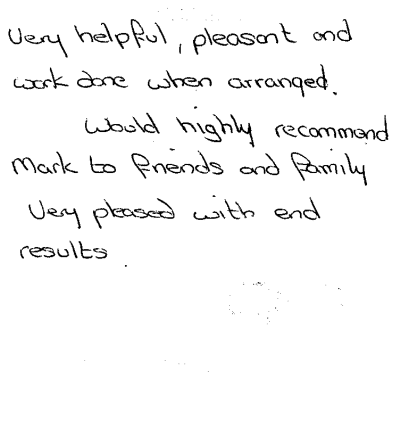 Very helpful, pleasant and
work done when arranged.
Would highly recommend
Mark to friends and family
Very pleased with end
results.